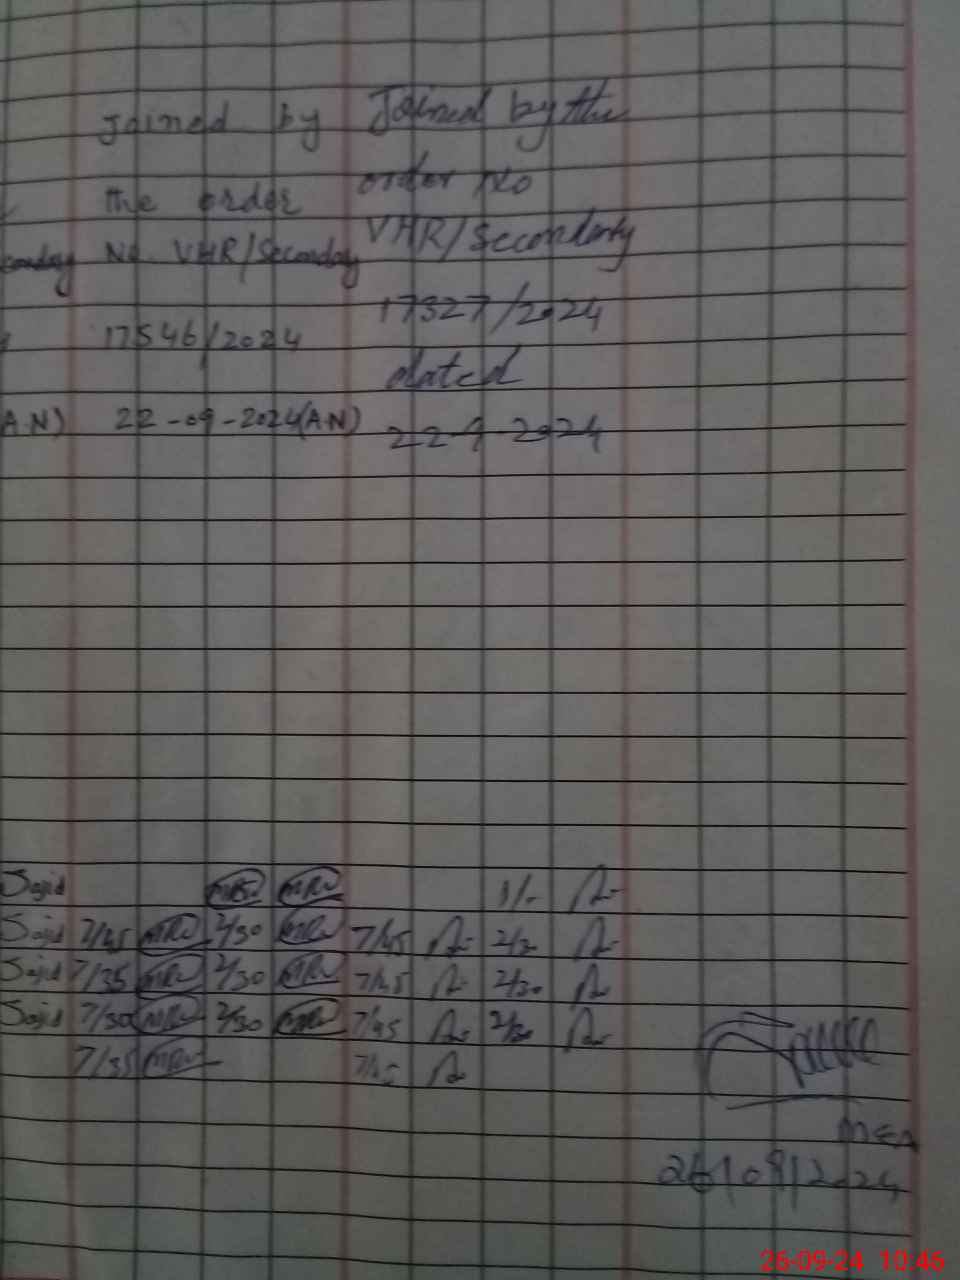 joined by
the order
No. VHR/Seconday
17546/2024
22-09-2024(A.N)
Joined by the
order No
VHR/Seconderty
17327/2024
dated
22-9-2024
A.N)
Sajid
Sajid 7/45 2/30 7/45 2/30
Sajid 7/35 2/30 7/45 2/30
Sajid 7/30 2/30 7/45 2/30
7/35 7/45
MEA
26/09/2024
26-09-24 10:46